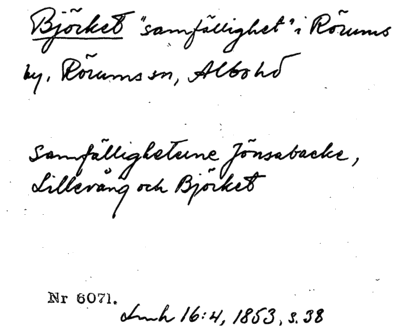 Björket "samfällighet" i Rörums
by, Rörums sn, Albo hd
Samfälligheterne Jönsabacke,
Lillevång och Björket
Nr 6071.
Lmh 16:4, 1853, s. 38